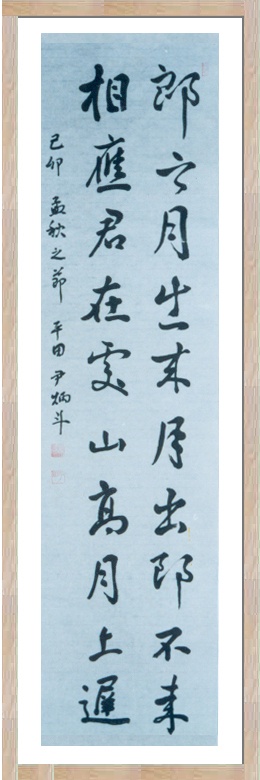 郎云月出來月出郎不來
相應君在處山高月上遲
己卯 孟秋之節 平田 尹炳斗